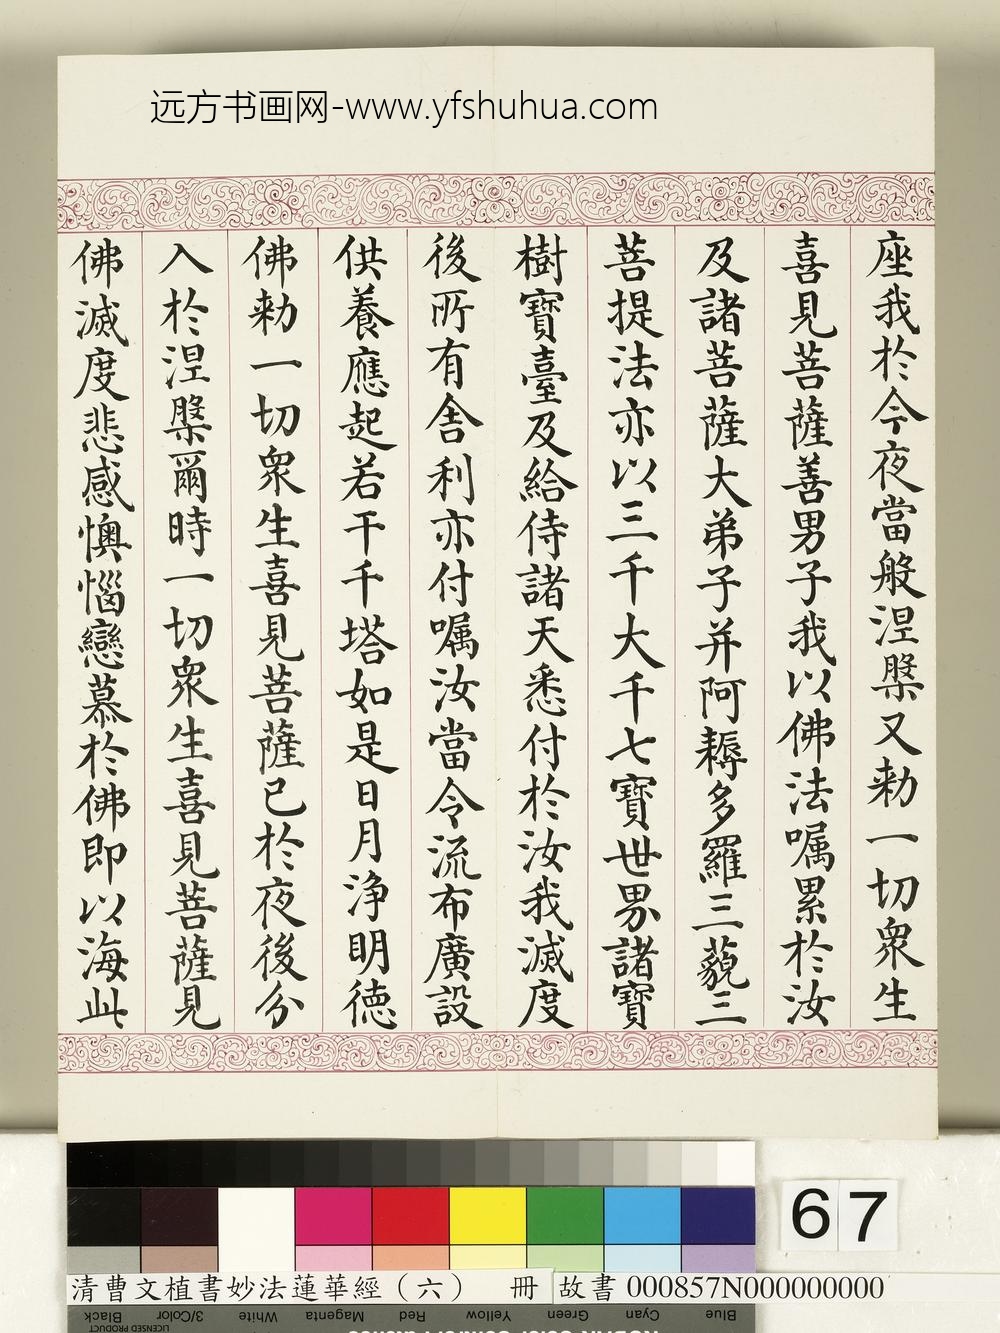 远方书画网-www.yfshuhua.com
座我於今夜當般涅槃又勅一切衆生
喜見菩薩善男子我以佛法嘱累於汝
及諸菩薩大弟子并阿耨多羅三藐三
菩提法亦以三千大千七寶世界諸寶
樹寶臺及給侍諸天悉付於汝我滅度
後所有舍利亦付嘱汝當令流布廣設
供養應起若干千塔如是日月淨明德
佛勅一切衆生喜見菩薩已於夜後分
入於涅槃爾時一切衆生喜見菩薩見
佛滅度悲感懊惱戀慕於佛即以海此
67
清曹文植書妙法蓮華經（六） 冊 故書 000857N000000000
Black 3/Color White Magenta Red Yellow Green Cyan Blue
LICENSED PRODUCT